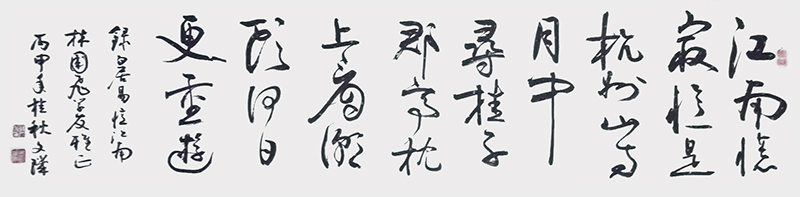 江南憶
最憶是
杭州山寺
月中
尋桂子
郡亭枕
上看潮
頭何日
更重遊
錄白居易憶江南
林園飛学友雅正
丙申年桂秋文